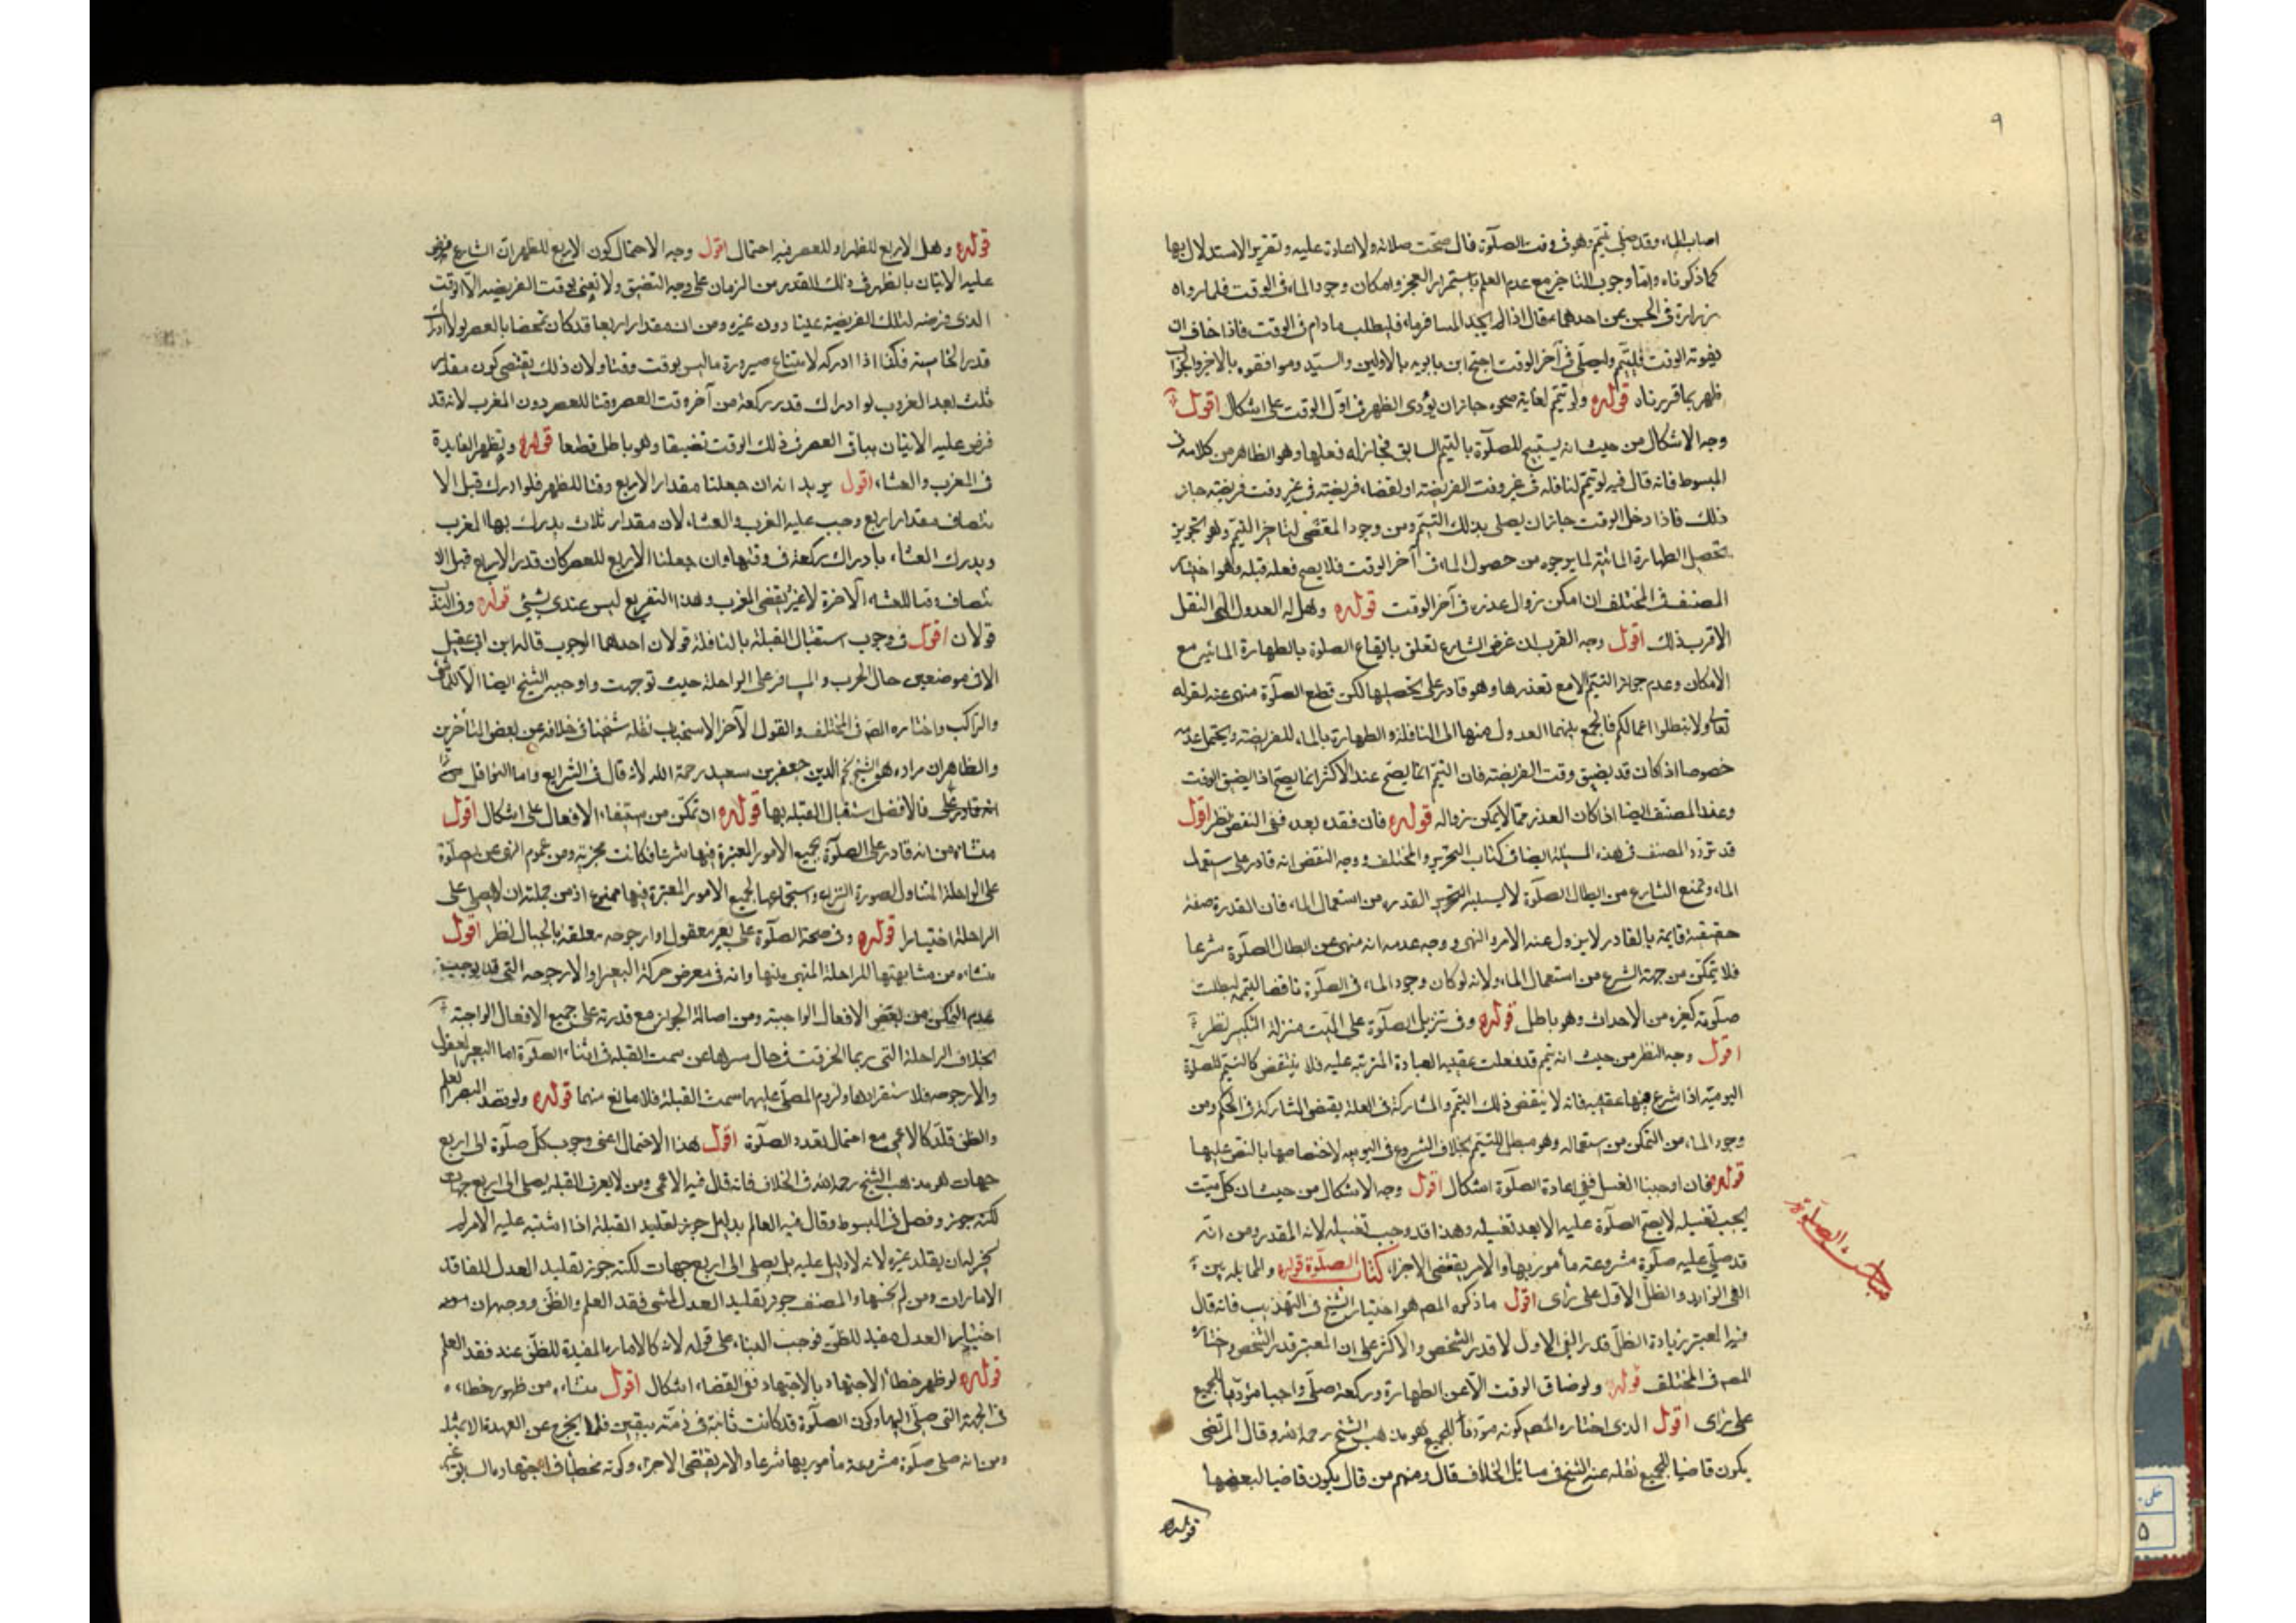 ٩
اصاب الماء وقد صلى بتيمم وهو فى وقت الصلوة قال صحت صلاته ولا اعادة عليه وتقرير الاستدلال بها
كما ذكرناه واما وجوب التاخير مع عدم العلم باستمرار العجز وامكان وجود الماء فى الوقت فلما رواه
زرارة فى الحسن عن احدهما ع قال اذا لم يجد المسافر ماء فليطلب مادام فى الوقت فاذا خاف ان
يفوته الوقت فليتيمم وليصلى فى آخر الوقت احتج ابن بابويه بالاولين والسيد وموافقوه بالاخر والجواب
ظهر بما قررناه قوله ولو تيمم لغاية صحوه جاز ان يؤدى الظهر فى اول الوقت على اشكال اقول
وجه الاشكال من حيث انه يستبيح الصلوة بالتيمم السابق فجاز له فعلها وهو الظاهر من كلامه فى
المبسوط فانه قال فيه لو تيمم لنافلة فى غير وقت الفريضة او لقضاء فريضة فى غير وقت فريضة جاز
ذلك فاذا دخل الوقت جاز ان يصلى بذلك التيمم ومن وجود المقتضى لتاخير التيمم وهو تجويز
تحصيل الطهارة المائية لما يرجوه من حصول الماء فى آخر الوقت فلا يصح فعله قبله وهو اختيار
المصنف فى المختلف ان امكن زوال عذره فى آخر الوقت قوله وهل له العدول الى النفل
الاقرب ذلك اقول وجه القرب ان غرض الشارع تعلق بايقاع الصلوة بالطهارة المائية مع
الامكان وعدم جواز التيمم الا مع تعذرها وهو قادر على تحصيلها لكن قطع الصلوة منهى عنه لقوله
تعالى ولا تبطلوا اعمالكم فالجمع بينهما العدول منها الى النافلة والطهارة بالماء للفريضة ويحتمل عدمه
خصوصا اذا كان قد يضيق وقت الفريضة فان التيمم انما يصح عند الاكثر انما يصح اذا يضيق الوقت
وعند المصنف ايضا اذا كان العذر مما لا يمكن زواله قوله فان فقده بعده ففى النقض نظر اقول
قد تردد المصنف فى هذه المسئلة ايضا فى كتاب التحرير والمختلف ووجه النقض انه قادر على استعمال
الماء ومنع الشارع من ابطال الصلوة لا يسلبه القدرة من استعمال الماء فان القدرة صفة
حقيقية قايمة بالقادر لا يزول عنه الامر والنهى ووجه عدمه انه منهى عن ابطال الصلوة شرعا
فلا يتمكن من جهة الشرع من استعمال الماء ولانه لو كان وجود الماء فى الصلوة ناقضا لتيممه لبطلت
صلوته كغيره من الاحداث وهو باطل قوله وفى تنزيل الصلوة على الميت منزلة التكبير نظر
اقول وجه النظر من حيث انه تيمم قد فعلت عقيبه العبادة المترتبة عليه فلا ينتقض كالتيمم للصلوة
اليومية اذا شرع فيها عقيبه فانه لا ينقض ذلك التيمم والمشاركة فى العلة يقتضى المشاركة فى الحكم ومن
وجود الماء من التمكن من استعماله وهو مبطل للتيمم بخلاف الشروع فى اليومية لاختصاصها بالنص عليها
قوله فان اوجبنا الغسل ففى اعادة الصلوة اشكال اقول وجه الاشكال من حيث ان كل ميت
يجب تغسيله لا يصح الصلوة عليه الا بعد تغسيله وهذا قد وجب تغسيله لانه المقدر ومن انه
قد صلى عليه صلوة مشروعة مأمور بها والامر يقتضى الاجزاء كتاب الصلوة قوله والمماثلة بين
الفئ الزايد والظل الاول على رأى اقول ما ذكره المصـ هو اختيار الشيخ فى التهذيب فانه قال
فيه المعتبر زيادة الظل قدر الفئ الاول لا قدر الشخص والاكثر على ان المعتبر قدر الشخص واختاره
المصـ فى المختلف قوله ولو ضاق الوقت الا عن الطهارة وركعة صلى واجبا مؤديا للجميع
على رأى اقول الذى اختاره المصـ كونه مؤديا للجميع هو مذهب الشيخ رحمه الله وقال المرتضى
يكون قاضيا للجميع نقله عنه الشيخ فى مسائل الخلاف قال ومنهم من قال يكون قاضيا لبعضها
قوله
مباحث الصلوة
قوله وهل الاربع للظهر او للعصر فيه احتمال اقول وجه الاحتمال كون الاربع للظهر ان الشارع فرض
عليه الاتيان بالظهر فى ذلك القدر من الزمان على وجه التضيق ولا نعنى بوقت الفريضة الا الوقت
الذى فرضه لتلك الفريضة عينا دون غيره ومن ان مقدار اربعا قد كان مختصا بالعصر لولا ادراك
قدر الخامسة فكذا اذا ادركه لامتناع صيرورة ما ليس بوقت وقتا ولان ذلك يقتضى كون مقدار
ثلث بعد الغروب لو ادرك قدر ركعة من آخر وقت العصر وقتا للعصر دون المغرب لانه قد
فرض عليه الاتيان بباقى العصر فى ذلك الوقت تضيقا وهو باطل قطعا قوله وتظهر الفايدة
فى المغرب والعشاء اقول يريد انه ان جعلنا مقدار الاربع وقتا للظهر فلو ادرك قبل الا
نتصاف مقدار اربع وجب عليه المغرب والعشاء لان مقدار ثلاث يدرك بها المغرب
ويدرك العشاء بادراك ركعة فى وقتها وان جعلنا الاربع للعصر كان قدر الاربع قبل الا
نتصاف وقتا للعشاء الآخرة لا غير يقضى المغرب وهذا التفريع ليس عندى بشئ قوله وفى الندب
قولان اقول فى وجوب استقبال القبلة بالنافلة قولان احدهما الوجوب قاله ابن ابى عقيل
الا فى موضعين حال الحرب والمسافر على الراحلة حيث توجهت واوجبه الشيخ ايضا الا للماشى
والراكب واختاره المصـ فى المختلف والقول الآخر الاستحباب نقله شيخنا فى خلافه عن بعض المتأخرين
والظاهر ان مراده هو الشيخ نجم الدين جعفر بن سعيد رحمة الله لانه قال فى الشرايع واما النوافل
فالافضل استقبال القبلة بها قوله ان تمكن من استيفاء الافعال على اشكال اقول
منشاه من انه قادر على الصلوة بجميع الامور المعتبرة فيها شرعا فكانت مجزية ومن عموم النهى عن الصلوة
على الراحلة المتناول لصورة النزاع واستجماعها لجميع الامور المعتبرة فيها ممنوع اذ من جملته ان لا يصلى على
الراحلة اختيارا قوله وفى صحة الصلوة على بعير معقول او ارجوحة معلقة بالحبال نظر اقول
منشاه من مشابهتها للراحلة المنهى عنها وانه فى معرض حركة البعير او الارجوحة التى قد يوجب
عدم التمكن من بعض الافعال الواجبة ومن اصالة الجواز مع قدرته على جميع الافعال الواجبة
بخلاف الراحلة التى ربما انحرفت فى حال سيرها عن سمت القبلة فى اثناء الصلوة اما البعير المعقول
والارجوحة فلاستقرارها ولزوم المصلى عليها سمت القبلة فلا مانع منهما قوله ولو فقد البصير العلم
والظن قلد كالاعمى مع احتمال تعدد الصلوة اقول هذا الاحتمال اعنى وجوب كل صلوة الى اربع
جهات هو مذهب الشيخ رحمه الله فى الخلاف فانه قال فيه الاعمى ومن لا يعرف القبلة يصلى الى اربع جهات
لكنه جوز وفصل فى المبسوط وقال فيه العالم بدليل جوز تقليد القبلة اذا اشتبه عليه الامر لم
يجز له ان يقلد غيره لانه لا دليل عليه بل يصلى الى اربع جهات لكنه جوز تقليد العدل للفاقد
الامارات ومن لم يحسنها والمصنف جوز تقليد العدل لمن فقد العلم والظن ووجهه ان
اختيار العدل مفيد للظن فوجب البناء على قوله لانه كالامارة المفيدة للظن عند فقد العلم
قوله لو ظهر خطأ الاجتهاد بالاجتهاد ففى القضاء اشكال اقول منشاه من ظهور خطاءه
فى الجهة التى صلى اليها وكون الصلوة قد كانت ثابتة فى ذمته بيقين فلا يخرج عن العهدة الا بمثله
ومن انه صلى صلوة مشروعة مأمور بها شرعا والامر يقتضى الاجزاء وكونه مخطئا فى اجتهاده السابق غير